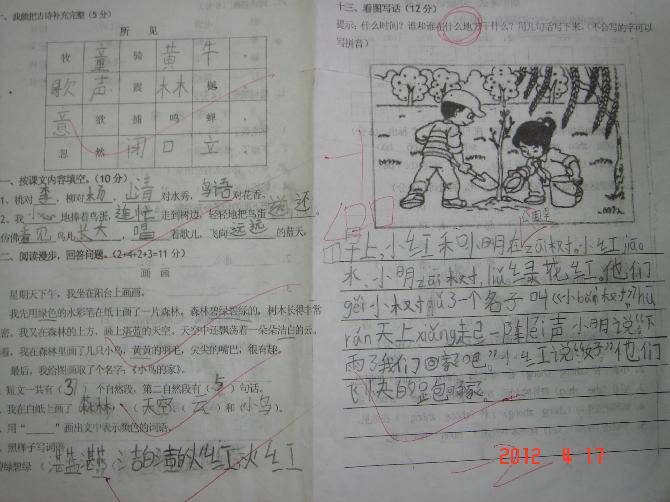 一、我能把古诗补充完整(5分)
所 见
牧 童 骑 黄 牛,
歌 声 震 林 樾。
意 欲 捕 鸣 蝉,
忽 然 闭 口 立。
一、按课文内容填空。(10分)
1、桃对李,柳对杨,山清对水秀,鸟语对花香。
2、我小心地捧着鸟蛋,连忙走到树边,轻轻地把鸟蛋送还。
仿佛看见鸟儿长大,唱着歌儿,飞向远远的蓝天。
二、阅读漫步,回答问题。(2+4+2+3=11分)
画 画
星期天下午,我坐在阳台上画画。
我先用绿色的水彩笔在纸上画了一片森林,森林碧绿碧绿的,树木长得非常
密。我又在森林的上方,画上湛蓝的天空。天空中还飘荡着一朵朵洁白的云。
着,我在森林里画了几只小鸟,黄黄的羽毛,尖尖的嘴巴,很有趣。
最后,我给图画取了个名字:《小鸟的家》。
短文一共有(3)个自然段,第二自然段有( )句话。
我在白纸上画了(森林)、(天空)(云)和(小鸟)。
用“——”画出文中表示颜色的词语。
照样子写词语。
碧绿 湛蓝湛蓝 洁白 火红火红
十三、看图写话(12分)
提示:什么时间?谁和谁在什么地方干什么?用几句话写下来。(不会写的字可以
写拼音)
公園里
早上,小红和小明在zāi树。小红jiāo
水、小明zāi树,绿花红。他们
gěi小树 了一个名子叫《小 树》hū
rán天上xiǎng起一阵 声小明说“下
雨了我们回家吧。”小红说“好”他们
飞 夬的 包回家
2012 4 17